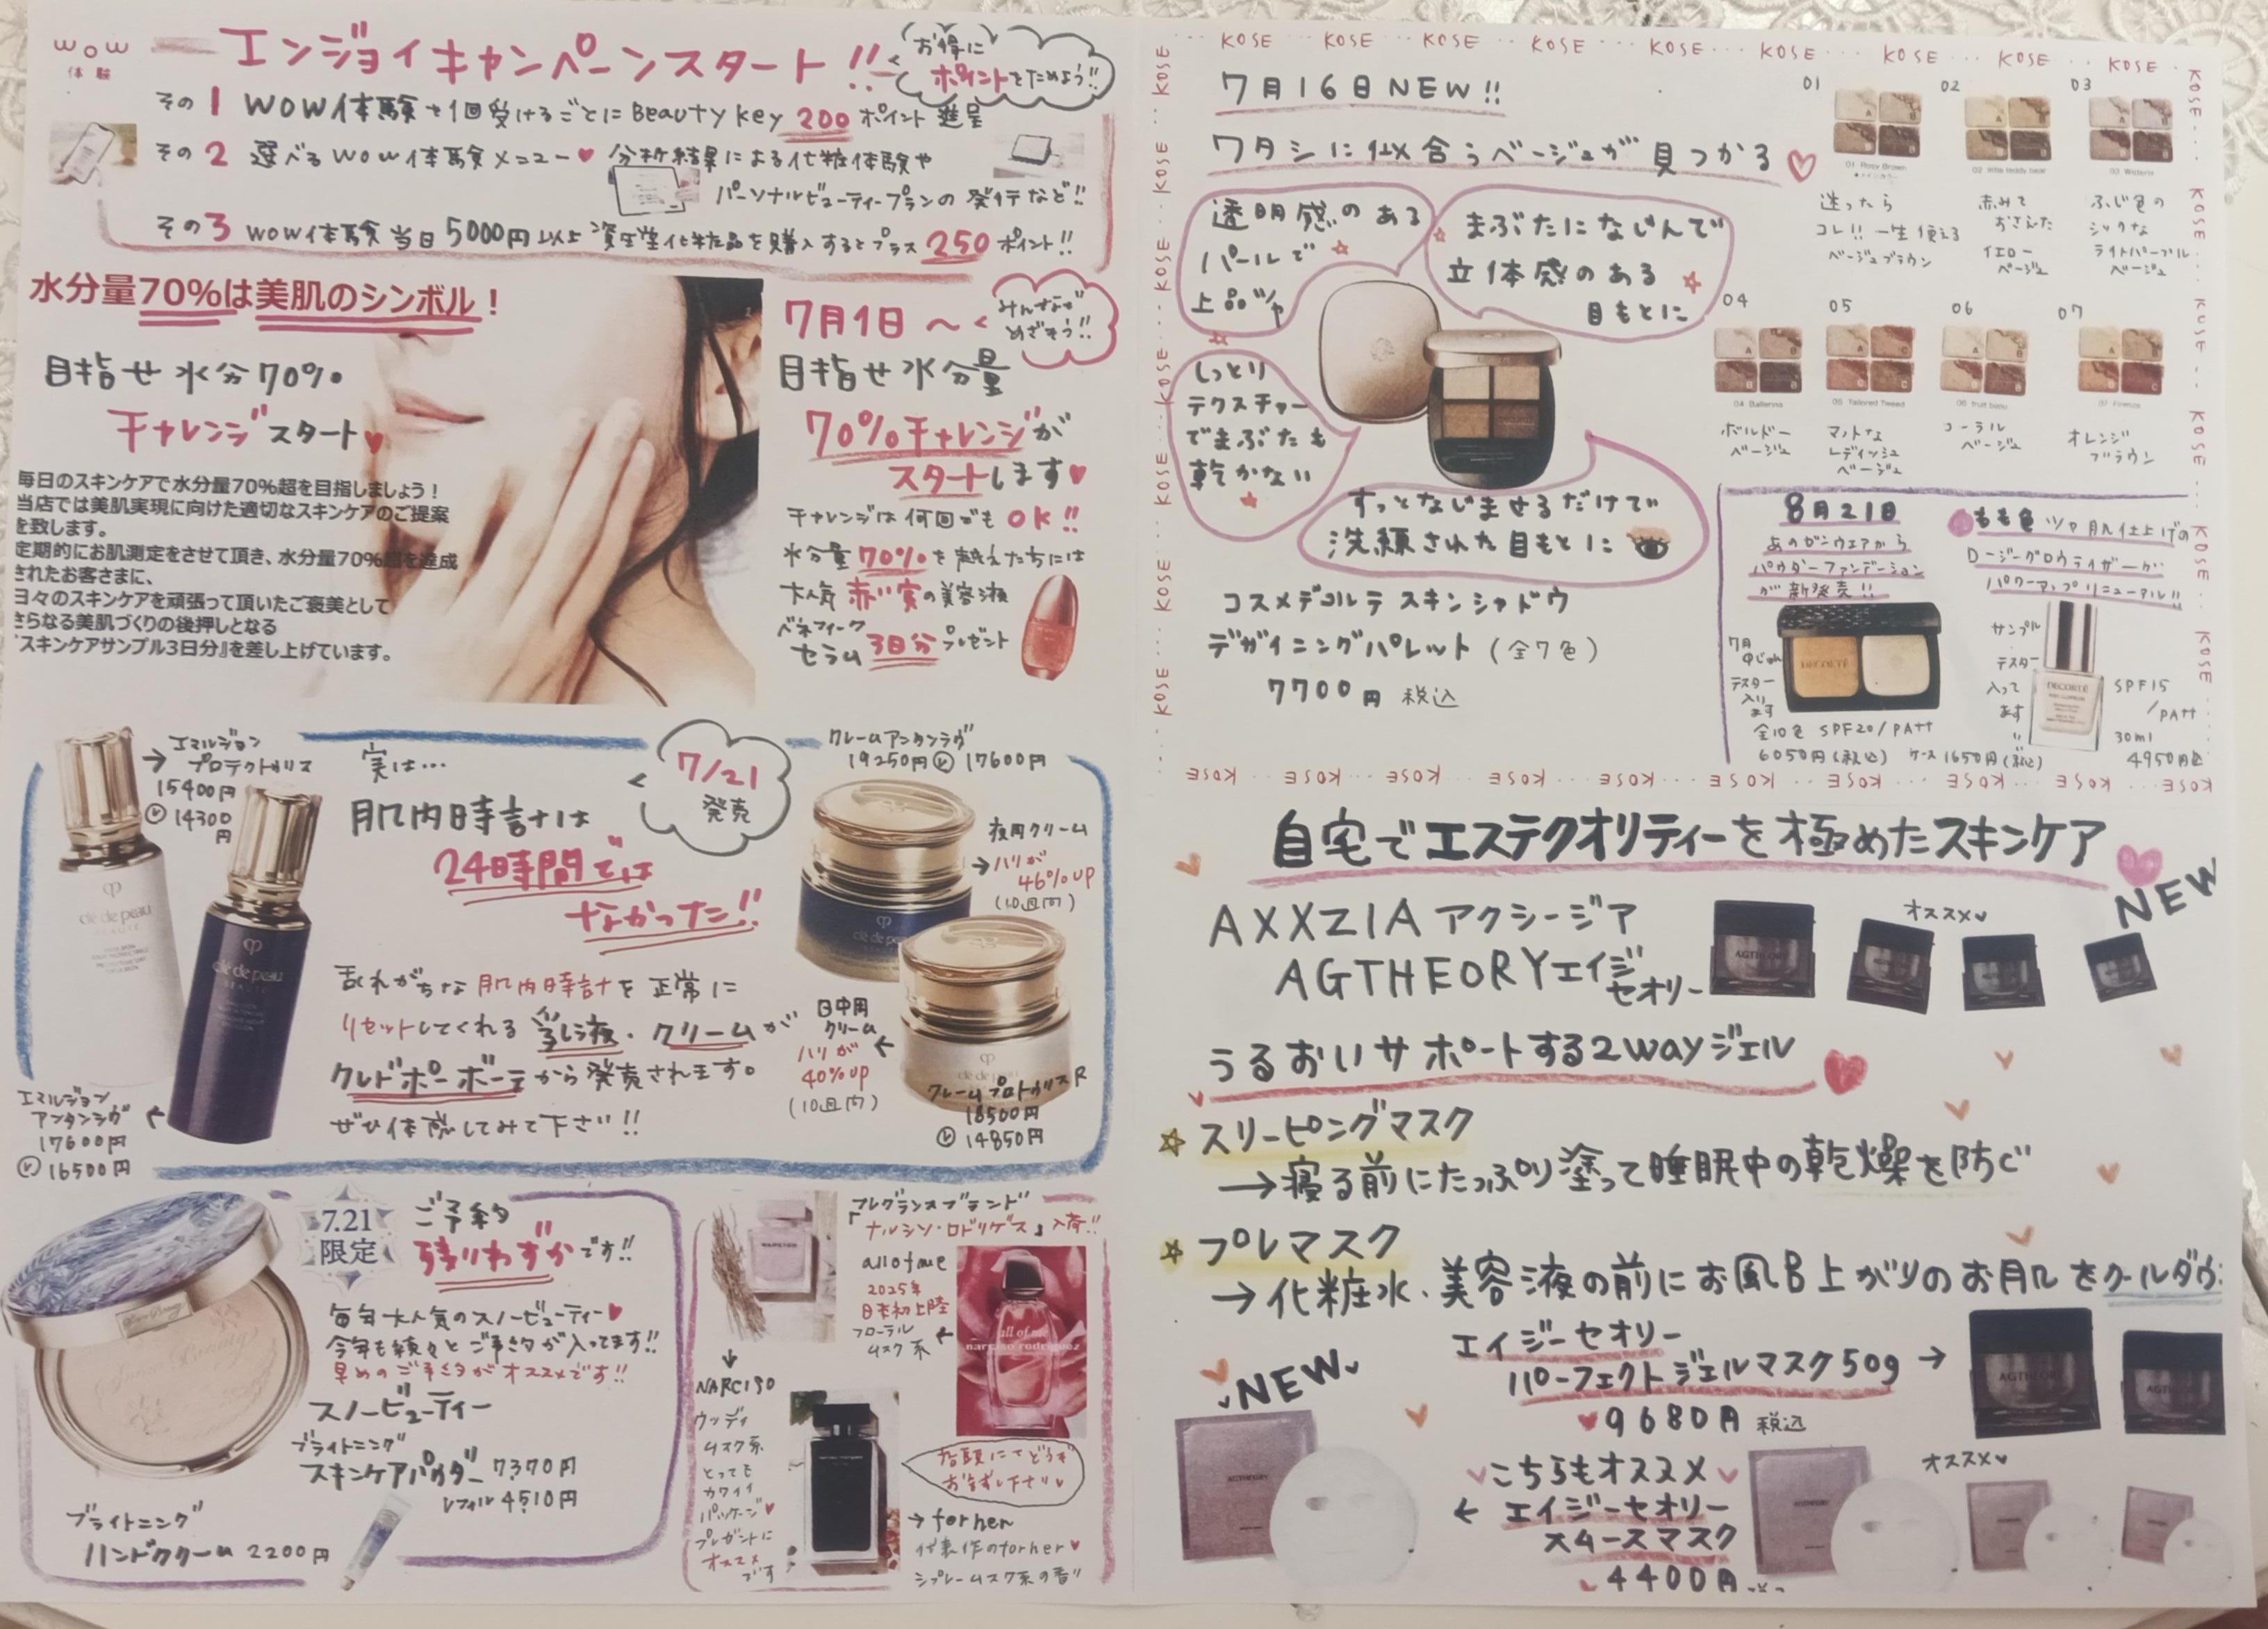 wow
体験
エンジョイキャンペーンスタート!!
お得に
ポイントをためよう!!
その1 WOW体験を1回受けるごとにBeauty Key 200ポイント進呈
その2 選べるWOW体験メニュー♥ 分析結果による化粧体験や
パーソナルビューティープランの発行など!!
その3 WOW体験当日5000円以上資生堂化粧品を購入するとプラス250ポイント!!
水分量70%は美肌のシンボル!
目指せ水分70%
チャレンジスタート♥
毎日のスキンケアで水分量70%超を目指しましょう!
当店では美肌実現に向けた適切なスキンケアのご提案
を致します。
定期的にお肌測定をさせて頂き、水分量70%超を達成
されたお客さまに、
日々のスキンケアを頑張って頂いたご褒美として
さらなる美肌づくりの後押しとなる
『スキンケアサンプル3日分』を差し上げています。
7月1日〜
みんなで
めざそう!!
目指せ水分量
70%チャレンジが
スタートします♥
チャレンジは何回でもOK!!
水分量70%を超えた方には
大人気 赤い実の美容液
ベネフィーク
セラム 3日分プレゼント
エマルジョン
プロテクトゥリス
15400円
レ 14300円
cle de peau
BEAUTÉ
エマルジョン
アンタンシヴ
17600円
レ 16500円
実は…
肌内時計は
24時間では
なかった!!
7/21
発売
乱れがちな肌内時計を正常に
リセットしてくれる乳液・クリームが
クレドポーボーテから発売されます。
ぜひ体感してみて下さい!!
クレームアンタンシヴ
19250円 レ 17600円
夜用クリーム
→ハリが
46%up
(10週間)
日中用
クリーム
ハリが
40%up
(10週間)
クレームプロトゥリスR
16500円
レ 14850円
7.21
限定
ご予約
残りわずかです!!
毎年大人気のスノービューティー♥
今年も続々とご予約が入ってます!!
早めのご予約がオススメです!!
スノービューティー
ブライトニング
スキンケアパウダー 7370円
レフィル 4510円
ブライトニング
ハンドクリーム 2200円
フレグランスブランド
「ナルシソ・ロドリゲス」入荷!!
all of me
2025年
日本初上陸
フローラル
ムスク系
all of me
narciso rodriguez
NARCISO
ウッディ
ムスク系
とっても
カワイイ
パッケージ♥
プレゼントに
オススメ
です
店頭にてどうぞ
お試し下さい♥
→for her
代表作のfor her♥
シプレームスク系の香り
KOSE KOSE KOSE KOSE KOSE KOSE KOSE KOSE KOSE
7月16日NEW!!
ワタシに似合うベージュが見つかる♡
透明感のある
パールで
上品ツヤ
まぶたになじんで
立体感のある
目もとに
しっとり
テクスチャー
でまぶたも
乾かない
すっとなじませるだけで
洗練された目もとに
コスメデコルテ スキンシャドウ
デザイニングパレット(全7色)
7700円 税込
01
01 Rosy Brown
迷ったら
コレ!!一生使える
ベージュブラウン
02
02 little teddy bear
赤みを
おさえた
イエロー
ベージュ
03
03 Wisteria
ふじ色の
シックな
ライトパープル
ベージュ
04
04 Ballerina
ボルドー
ベージュ
05
05 Tailored Tweed
マットな
レディッシュ
ベージュ
06
コーラル
ベージュ
07
07 Firenze
オレンジ
ブラウン
8月21日
あのゼンウェアから
パウダーファンデーション
が新発売!!
7月
中じゅん
テスター
入り
ます
DECORTÉ
全10色 SPF20/PA++
6050円(税込) ケース1650円(税込)
もも色ツヤ肌仕上げの
ロージーグロウライザーが
パワーアップリニューアル!!
サンプル
テスター
入って
ます
DECORTÉ
SPF15
/PA++
30ml
4950円込
KOSE KOSE KOSE KOSE KOSE KOSE KOSE KOSE KOSE KOSE
自宅でエステクオリティーを極めたスキンケア
NEW
AXXZIAアクシージア
AGTHEORYエイジ
セオリー
オススメ♥
うるおいサポートする2wayジェル
☆スリーピングマスク
→寝る前にたっぷり塗って睡眠中の乾燥を防ぐ
☆プレマスク
→化粧水、美容液の前にお風呂上がりのお肌をクールダウン
エイジーセオリー
パーフェクトジェルマスク50g→
♥9680円 税込
NEW
AGTHEORY
♥こちらもオススメ♥
← エイジーセオリー
スムースマスク
4400円
オススメ♥